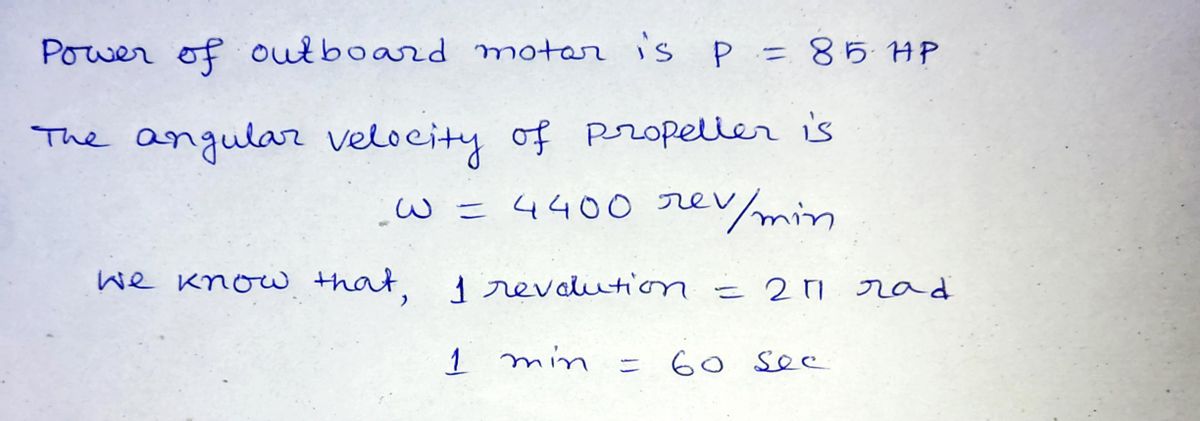 Power of outboard motor is P = 85 HP
The angular velocity of propeller is
ω = 4400 rev/min
We know that, 1 revolution = 2π rad
1 min = 60 sec